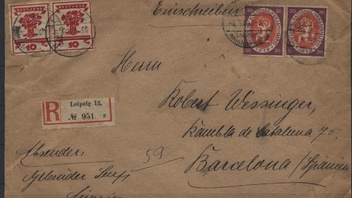 Einschreiben
10 10
Herrn
Robert Wessinger,
Rambla de Cataluna 7
Barcelona / Spanien
R
Leipzig 13.
№ 951
Absender:
Gebrüder Senf
Leipzig
59